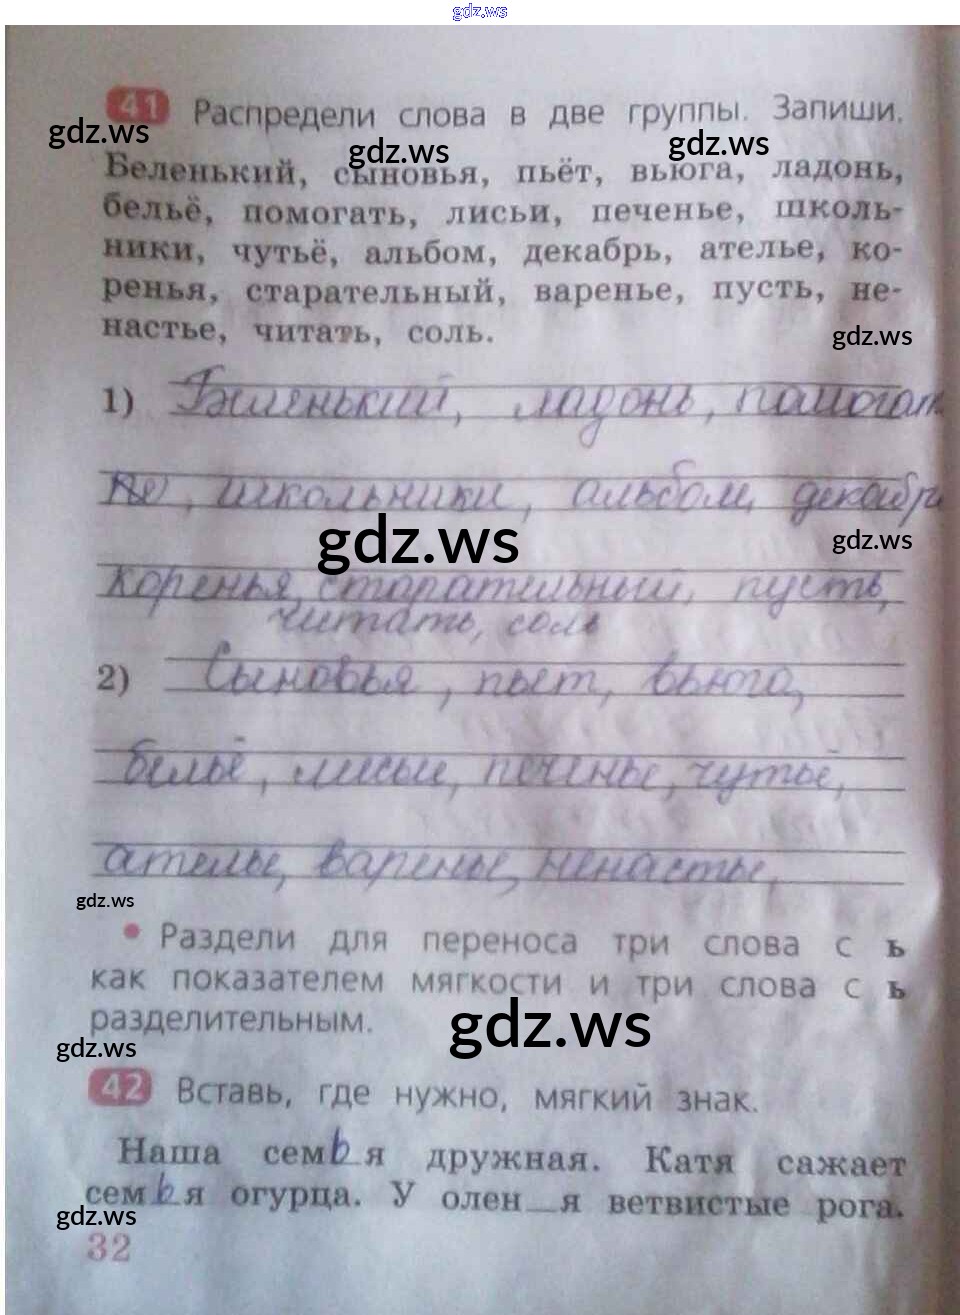 gdz.ws
41 Распредели слова в две группы. Запиши.
gdz.ws gdz.ws gdz.ws
Беленький, сыновья, пьёт, вьюга, ладонь,
бельё, помогать, лисьи, печенье, школь-
ники, чутьё, альбом, декабрь, ателье, ко-
ренья, старательный, варенье, пусть, не-
настье, читать, соль.
gdz.ws
1) Беленький, ладонь, помогать
школьники, альбом, декабрь
gdz.ws gdz.ws
коренья, старательный, пусть,
читать, соль
2) Сыновья, пьет, вьюга,
бельё, лисьи, печенье, чутьё,
ателье, варенье, ненастье,
gdz.ws
• Раздели для переноса три слова с ь
как показателем мягкости и три слова с ь
разделительным.
gdz.ws
gdz.ws
42 Вставь, где нужно, мягкий знак.
Наша семья дружная. Катя сажает
семья огурца. У олен_я ветвистые рога.
gdz.ws
32